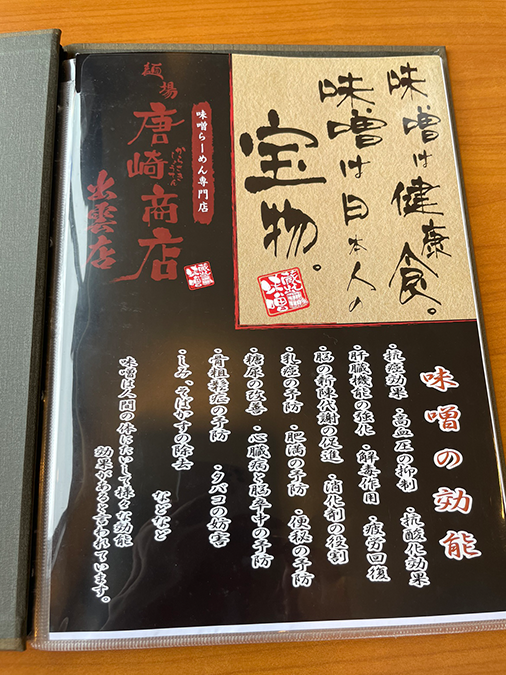 味噌は健康食。
味噌は日本人の
宝物。
蔵出味噌
味噌らーめん専門店
麺場
唐崎商店
からさきしょうてん
出雲店
味噌の効能
・抗癌効果・高血圧の抑制・抗酸化効果
・肝臓機能の強化・解毒作用・疲労回復
・脳の新陳代謝の促進・消化剤の役割
・乳癌の予防・肥満の予防・便秘の予防
・糖尿の改善・心臓病と脳卒中の予防
・骨粗鬆症の予防・タバコの妨害
・しみ、そばかすの除去
などなど
味噌は人間の体にたいして様々な効能
効果があると言われています。